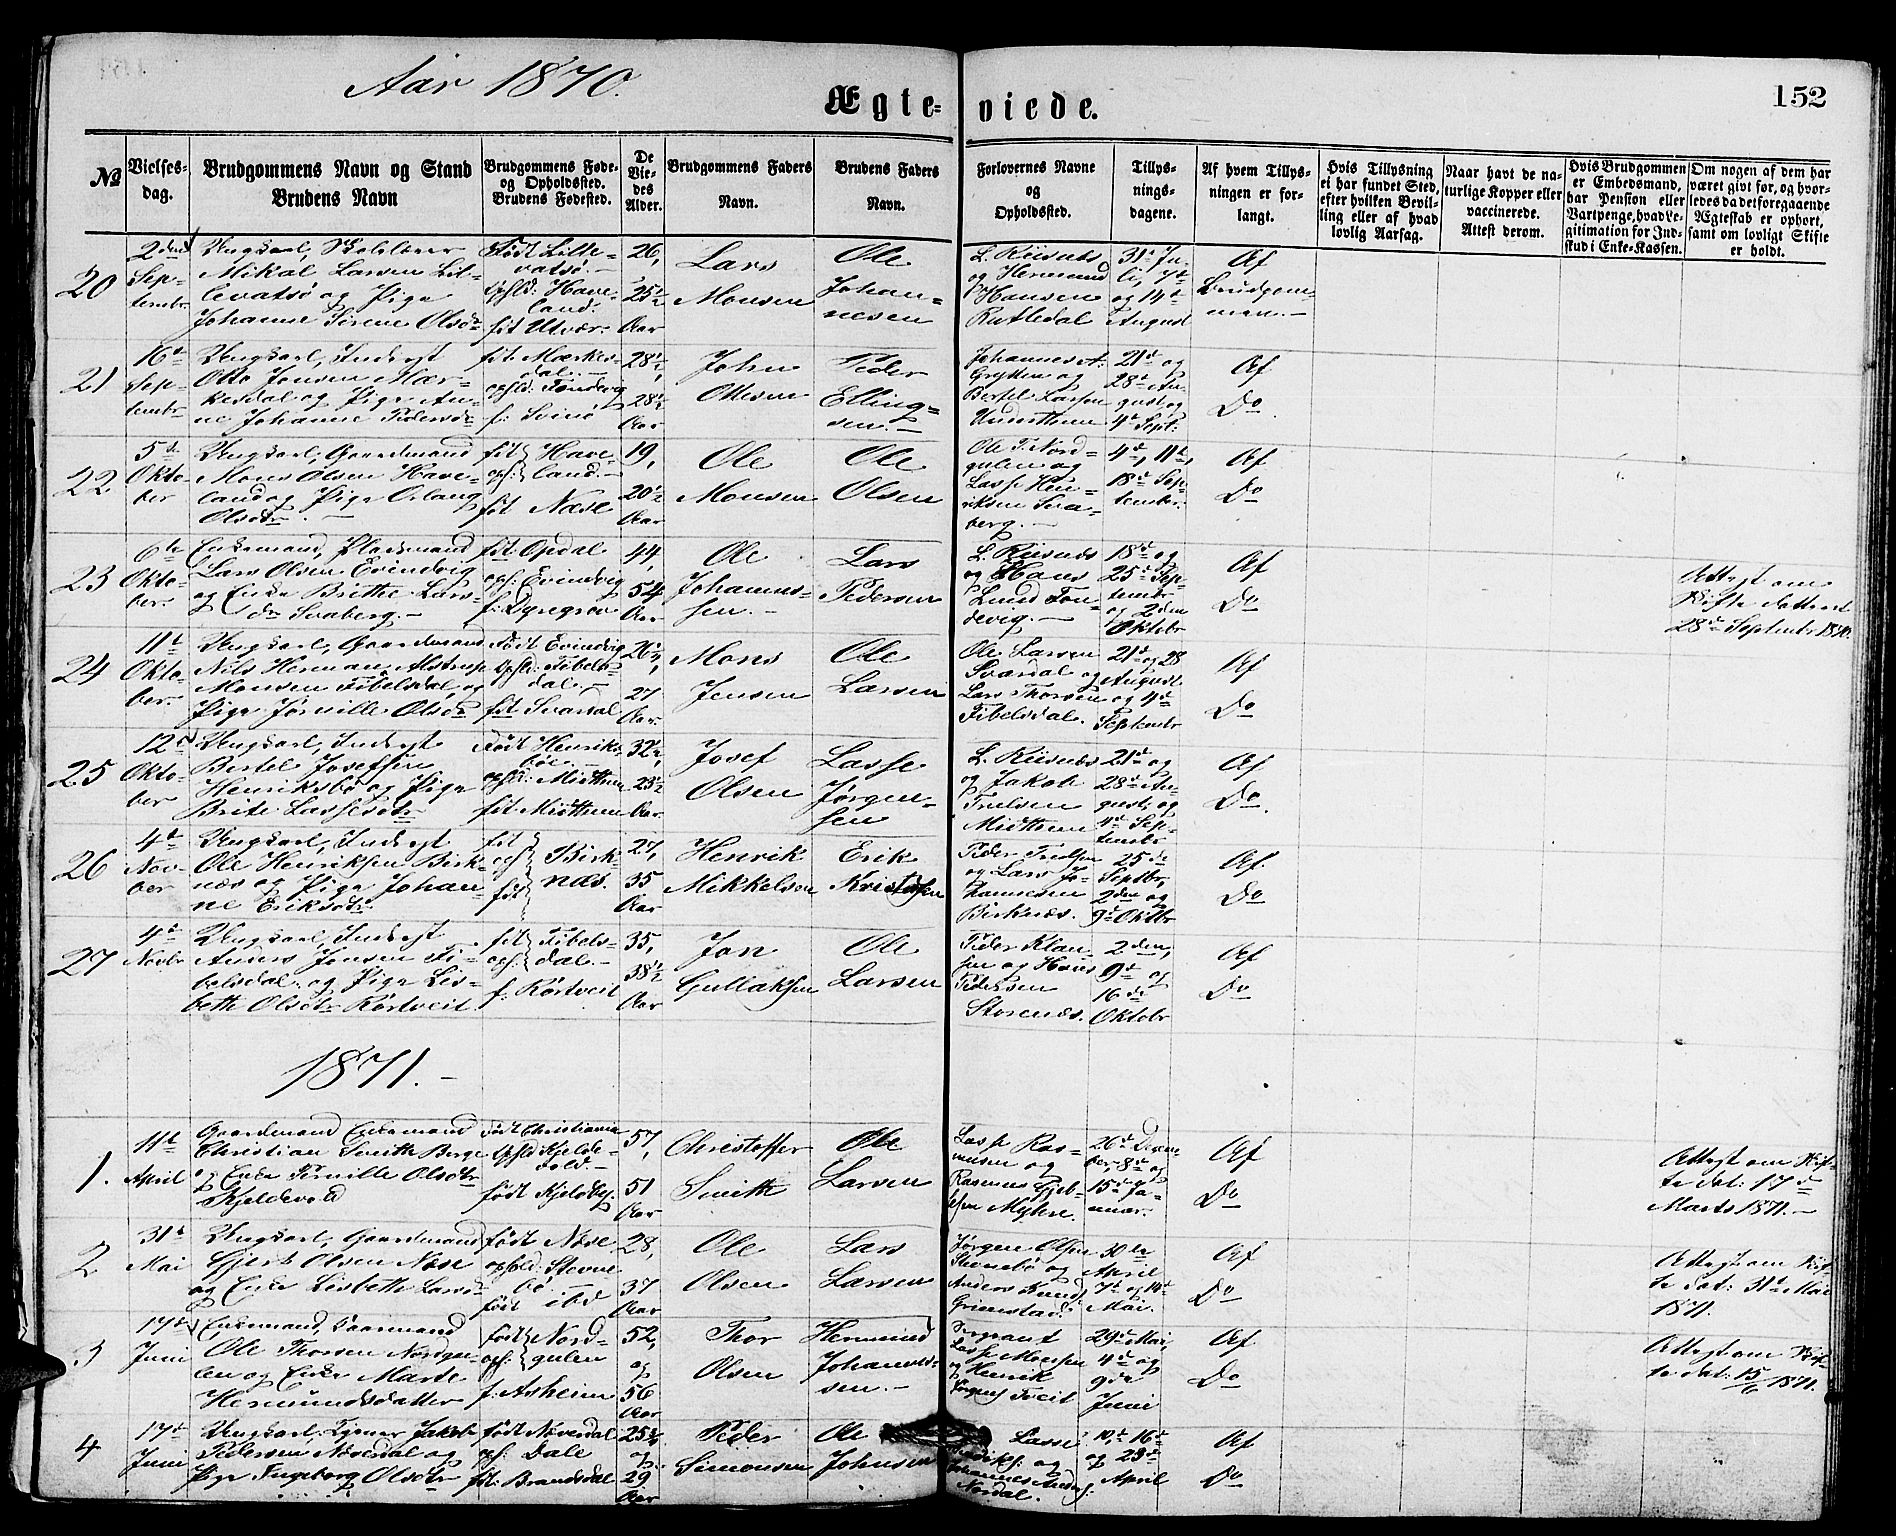 Aar 1870.
Ægte- viede.
152
No
Vielses-
dag.
Brudgommens Navn og Stand
Brudens Navn
Brudgommens Føde-
og Opholdssted.
Brudens Fødested.
De
Vie-
des
Alder.
Brudgommens Faders
Navn.
Brudens Faders
Navn.
Forlovernes Navne
og
Opholdssted.
Tillys-
nings-
dagene.
Af hvem Tillys-
ningen er for-
langt.
Hvis Tillysning
ei har fundet Sted,
efter hvilken Bevil-
ling eller af hvad
lovlig Aarsag.
Naar havt de na-
turlige Kopper eller
vaccinerede.
Attest derom.
Hvis Brudgommen
er Embedsmand,
har Pension eller
Vartpenge, hvad Le-
gitimation for Ind-
skud i Enke-Kassen.
Om nogen af dem har
været givt før, og hvor-
ledes da det foregaaende
Ægteskab er ophørt,
samt om lovligt Skifte
er holdt.
20
2den
Sep-
tembr
Ungkarl, Skolelærer
Mikal Larsen Lil-
levatsø og Pige
Johanne Sirene Olsdtr
Født Lille-
vatsø.-
Opfld: Have-
land.
føt Utvær.
26,
25½
Aar
Lars
Monsen
Ole
Johan-
nesen
L. Riisnæs
og Hermund
Hansen
Rutledal
31te Ju-
li, 7de
og 14de
August
Af
Brudgom-
men.-
21
16de
Sep-
tembr
Ungkarl, Inderst
Otto Jensen Mær-
kesdal og Pige An-
ne Johanne Pedersdtr
føt. Mærkes-
dal.-
opfld. Tøndevig
f: Svinø
28½,
28½
Aar
John
Ottesen
Peder
Elling-
sen.-
Johannes A.
Grytten og
Bertel Larsen
21de og
28de Au-
gust og
4de Sept:
Af
Do
22
5te
Okto-
ber
Ungkarl, Gaardmand
Mons Olsen Have-
land og Pige
Olsdtr.-
føt } Have-
opf: } land.-
føt Næse
19,
20½
Aar
Ole
Monsen
Ole
Olsen
Ole T. Nord-
gulen og
Lasse Hen-
riksen Sva-
berg.-
4de, 11te,
18de Sep-
tember.
Af
Do
23
6te
Okto-
ber.
Enkemand, Pladsmand
Lars Olsen Evindvig
og Enke Brithe Lars-
dtr Svaberg.-
føt. Opdal
opf: Evindvig
f: Dyregrov
44,
54
Aar
Ole
Johannes-
sen.-
Lars
Pedersen
L. Riisnæs
og Hans
Lund Tøn-
devig.-
18de og
25de Sep-
tembr
og 2den
Oktobr
Af
Do
Attest om
Skifte dateret
28de Septembr 1870.
24
11te
Okto-
ber.
Ungkarl, Gaardmand
Nils Herman Alstrup
Monsen Fibelsdal, og
Pige Jørnille Olsdtr
Født Evindvig
Opfld. Fibels-
dal.-
føt Svardal
26½,
27
Aar.
Mons
Jensen
Ole
Larsen
Ole Larsen
Svardal og
Lars Thorsen
Fibelsdal.
21de og 28
August
og 4de
Septembr
Af
Do
25
12te
Okto-
ber
Ungkarl, Inderst
Bertel Josefsen
Henriksbø og Pige
Brite Lassesdtr
Født Henriks-
bøe.-
opfld. Midttun
føt. Midttun
32½,
23½
Aar.
Josef
Olsen
Lasse
Jørgen-
sen
L. Riisnæs
og Jakob
Truelsen
Midttun
21de og
28de Au-
gust, og
4de Sep-
tembr
Af
Do.
26
4de
Nov-
ber
Ungkarl, Inderst
Ole Henriksen Birk-
næs og Pige Johan-
ne Eriksdtr
føt
opf
føt } Birk-
næs.
27,
35
Aar
Henrik
Mikkelsen
Erik
Kristofsen
Peder Truelsen
og Lars Jo-
hannesen
Birknæs.
25de
Septbr,
2den og
9de Oktbr
Af
Do
27
4de
Novbr
Ungkarl, Inderst
Anders Jonsen Fi-
belsdal og Pige Lis-
beth Olsdtr Kørtveit
føt } Fibels-
opf: } dal.-
f: Kørtveit
35,
38½
Aar
Jon
Gullaksen
Ole
Larsen
Peder Klau-
sen og Hans
Pedersen
Storenæs.
2den,
9de og
16de
Oktobr
Af
Do
1871.-
1.
11te
April
Gaardmand Enkemand
Christian Smith Berge
og Enke Pernille Olsdtr
Kjeldevold
Født Christiania
Opfld Kjelde-
vold.-
født Kjeldby.
57,
51
Aar
Christoffer
Smith
Ole
Larsen
Lasse Ras-
musen og
Rasmus Gjeb-
Myhre.
26de Decem-
ber 8de og
15de Ja-
nuar.
Af
Do
Attest om Skif-
te dat: 17de
Marts 1871.-
2
31te
Mai
Ungkarl, Gaardmand
Gjert Olsen Næse
og Enke Lisbeth Larsd
født Næse
opfld. Stevne-
bø.-
født ibd
28,
37
Aar
Ole
Olsen
Lars
Larsen
Jørgen Olsen
Stevnebø og
Anders Knuds
Grimstad.
30te
April
7de og 14de
Mai.
Af
Do
Attest om Skif-
te dat: 31te Mai
1871.
3
17de
Juni
Enkemand, Gaarmand
Ole Thorsen Nordgu-
len og Enke Marte
Hermundsdatter
født } Nord-
opf: } gulen
f. Asheim
52,
og
56
Aar
Thor
Olsen
Hermund
Johannes-
sen.-
Sergeant
Lasse Monsen
og Henrik
Tveit
29de Mai,
4de og
9de
Juni
Af
Do
Attest om Skif-
te dat: 15/6 1871.
4
17de
Juni
Ungkarl, Jakob
Pedersen Nøvedal og
Pige Ingeborg Olsdtr
født Nøvedal
opf: Dale
føt. Brandsdal
25¾
og
29
Aar
Peder
Simonsen
Ole
Johnsen
Lasse
og
Johannes Anders:
Nordal.
10de, 16de
og 23de
April
Af
Do